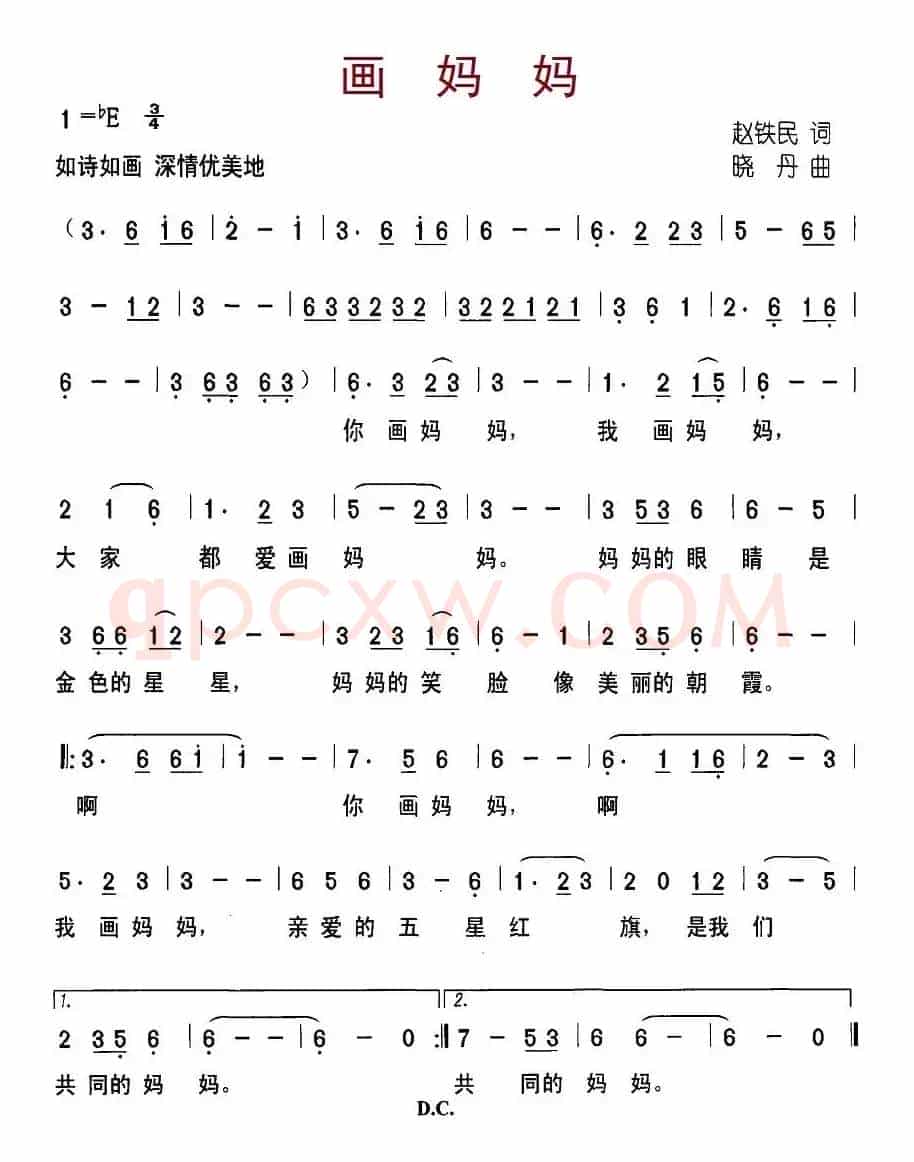 画 妈 妈
1=♭E 3/4
赵铁民 词
如诗如画 深情优美地
晓 丹 曲
(3· 6 i6 | 2 - i | 3· 6 i6 | 6 - - | 6· 2 23 | 5 - 65 |
3 - 12 | 3 - - | 63 323 32 | 32 21 21 | 3 6 1 | 2· 6 16 |
6 - - | 3 63 63) | 6· 3 23 | 3 - - | 1· 2 15 | 6 - - |
你 画 妈 妈, 我 画 妈 妈,
2 1 6 | 1· 2 3 | 5 - 23 | 3 - - | 3 53 6 | 6 - 5 |
大 家 都 爱 画 妈 妈。 妈 妈的 眼 睛 是
qpcxw.COM
3 66 12 | 2 - - | 3 23 16 | 6 - 1 | 2 35 6 | 6 - - |
金 色的 星 星, 妈 妈的 笑 脸 像 美 丽的 朝 霞。
‖: 3· 6 6i | i - - | 7· 5 6 | 6 - - | 6· 1 16 | 2 - 3 |
啊 你 画 妈 妈, 啊
5· 2 3 | 3 - - | 6 5 6 | 3 - 6 | 1· 23 | 2 0 12 | 3 - 5 |
我 画 妈 妈, 亲 爱 的 五 星 红 旗, 是我 们
1. 2.
2 35 6 | 6 - - | 6 - 0 :‖ 7 - 53 | 6 6 - | 6 - 0 ‖
共 同的 妈 妈。 共 同的 妈 妈。
D.C.